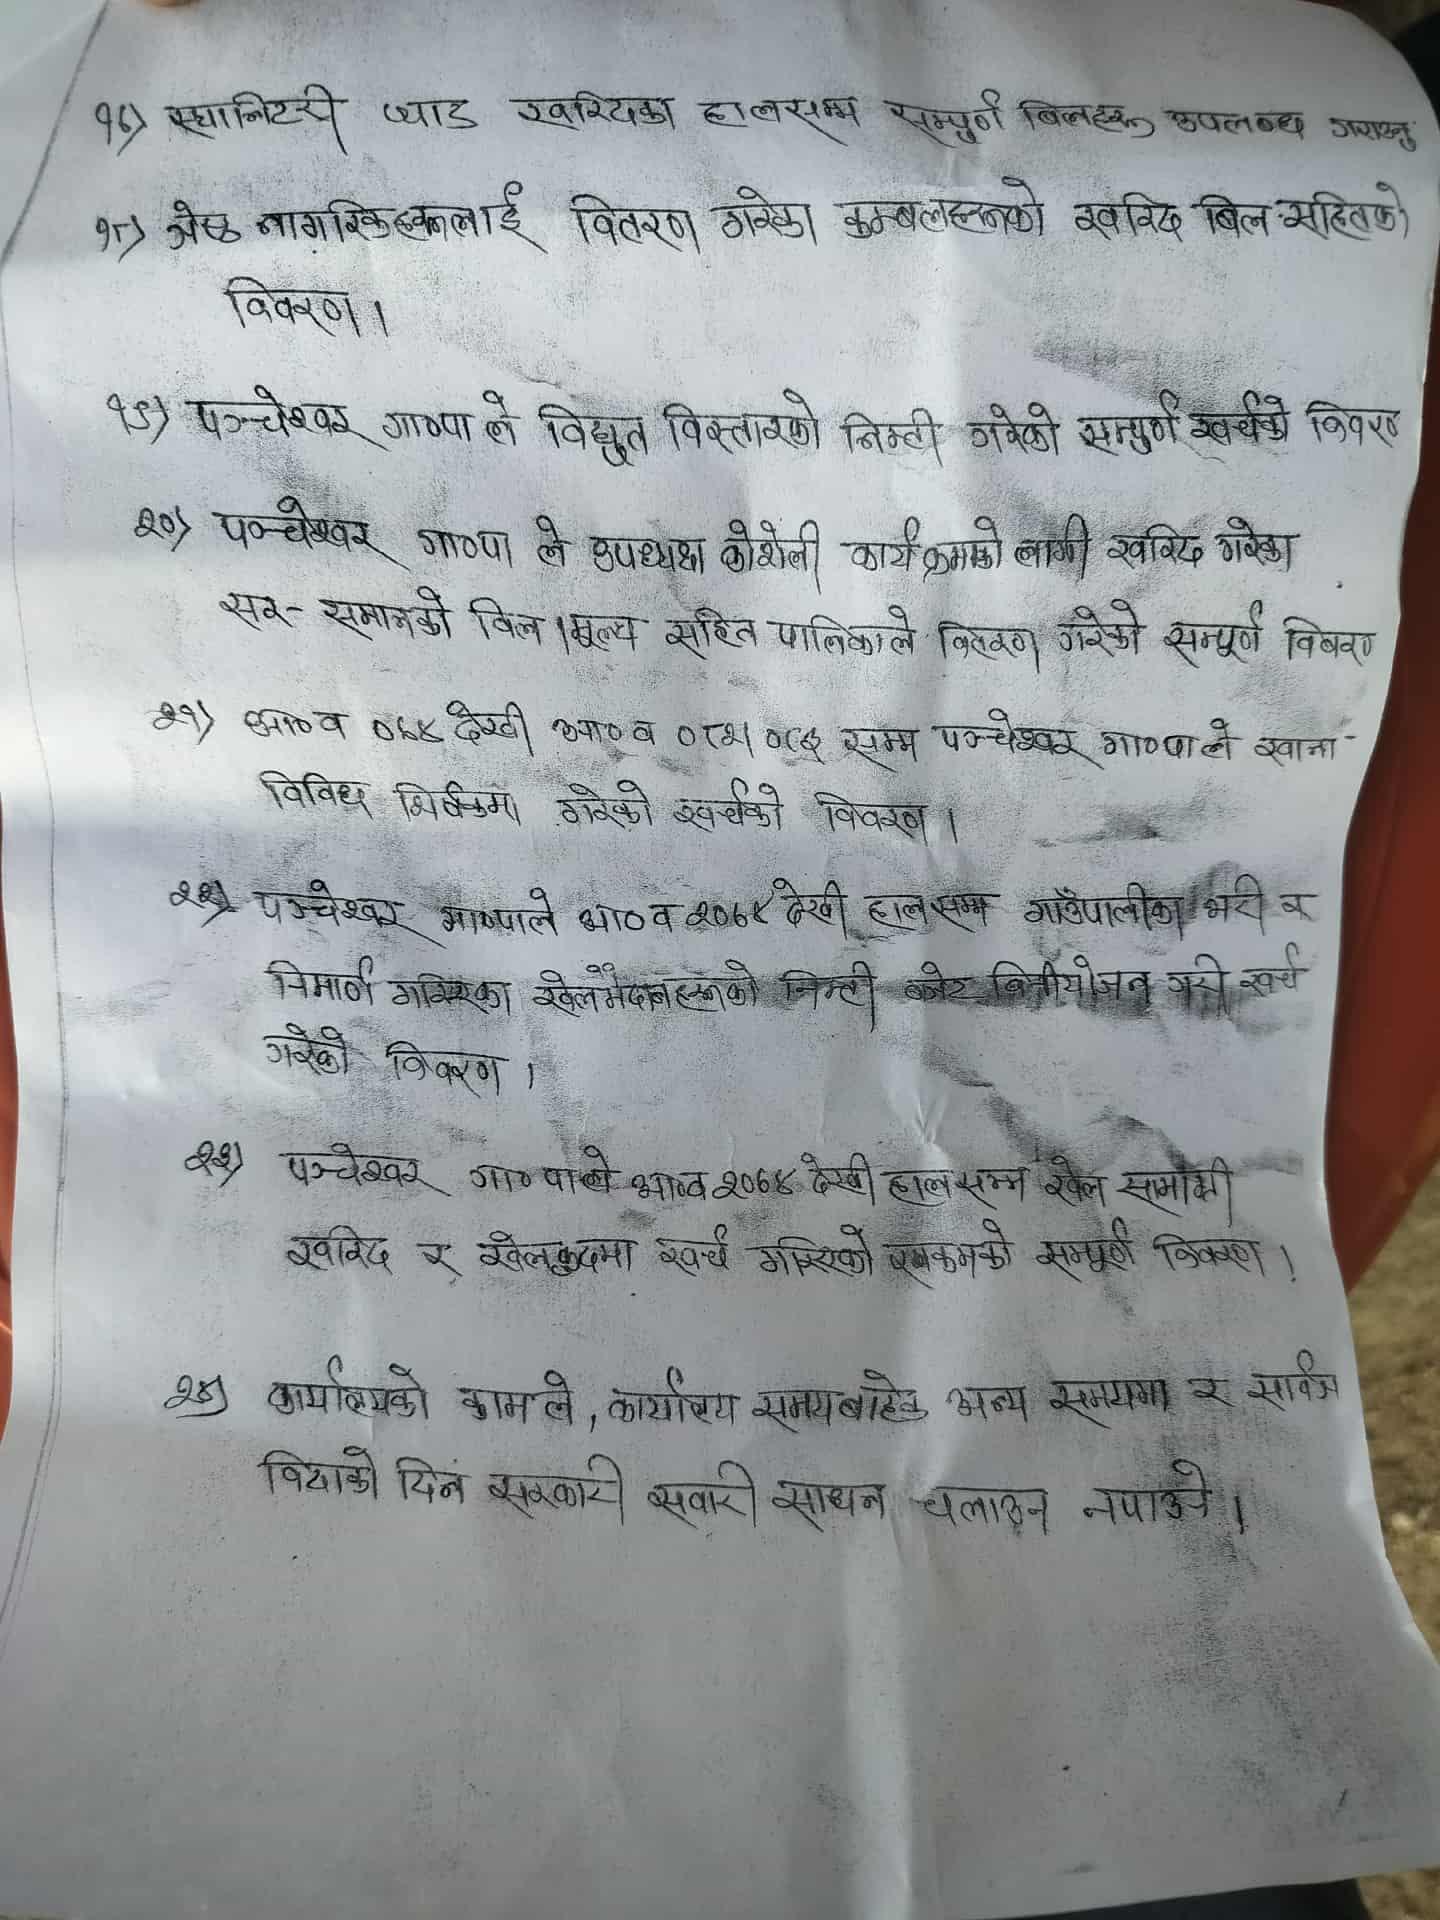 १७) स्यानिटरी प्याड खरिदका हालसम्म सम्पुर्ण बिलहरू उपलब्ध गराउनु
१८) जेष्ठ नागरिकहरूलाई वितरण गरेका कम्बलहरूको खरिद बिल सहितको
विवरण।
१९) पञ्चेश्वर गा०पा ले विद्युत विस्तारको निम्ती गरेको सम्पुर्ण खर्चको विवरण
२०) पञ्चेश्वर गा०पा ले उपध्यक्ष कोशेली कार्यक्रमको लागी खरिद गरेका
सर-समानको विल।मूल्य सहित पालिकाले वितरण गरेको सम्पूर्ण विवरण
२१) आ०व ०७४ देखी आ०व ०८२।०८३ सम्म पञ्चेश्वर गा०पाले खाना-
विविध शिर्षकमा गरेको खर्चको विवरण।
२२) पञ्चेश्वर गा०पाले आ०व २०७४ देखी हालसम्म गाउँपालीका भरी र
निमार्ण गरिएका खेलमैदानहरूको निम्ती बजेट विनीयोजन गरी खर्च
गरेको विवरण।
२३) पञ्चेश्वर गा०पाले आ०व २०७४ देखी हालसम्म खेल सामाग्री
खरिद र खेलकुदमा खर्च गरिएको रकमको सम्पूर्ण विवरण।
२४) कार्यालयको कामले, कार्यालय समयबाहेक अन्य समयमा र सार्वज
विदाको दिन सरकारी सवारी साधन चलाउन नपाउने।